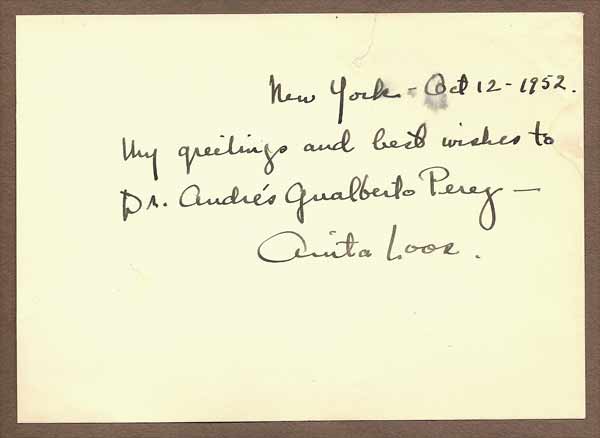 New York - Oct 12 - 1952.
My greetings and best wishes to
Dr. Andrés Gualberto Perez —
Anita Loos.